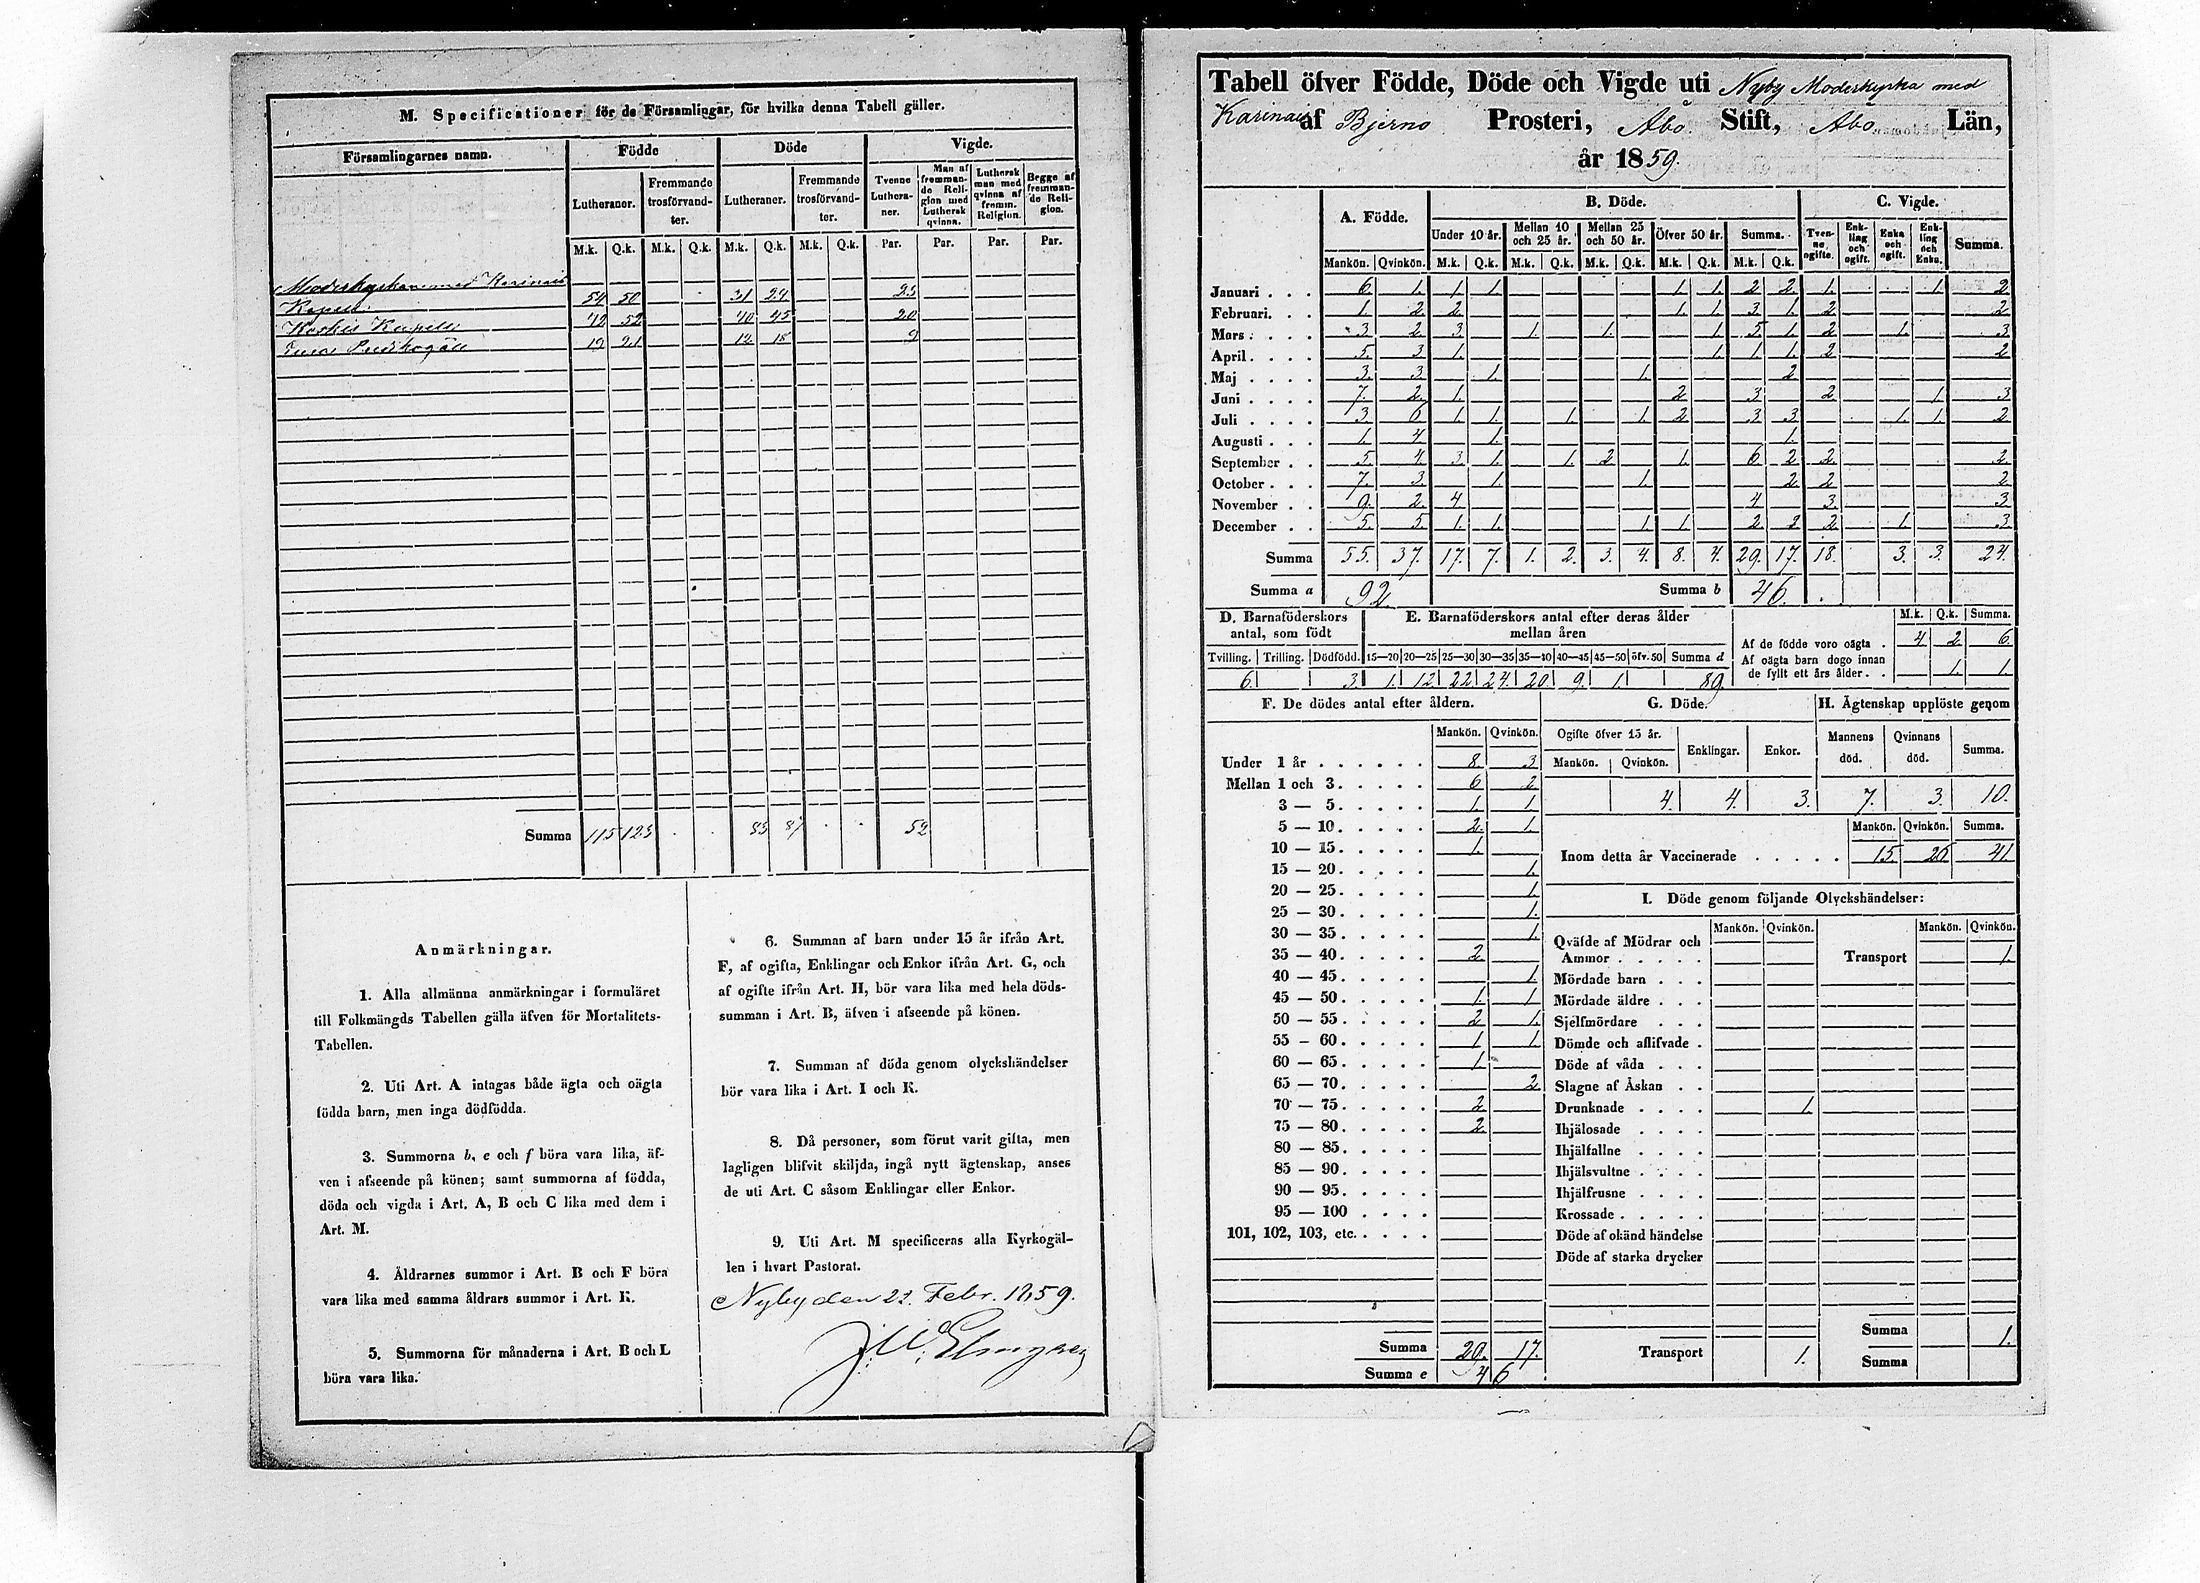 M. Specificationer för de Församlingar, för hvilka denna Tabell gäller.
Församlingarnes namn. Födde Döde Vigde.
Lutheraner. Fremmande trosförvandter. Lutheraner. Fremmande trosförvandter. Tvenne Lutheraner. Man af fremmande Religion med Luthersk qvinna. Luthersk man med qvinna af fremm. Religion. Begge af fremmande Religion.
M.k. Q.k. M.k. Q.k. M.k. Q.k. M.k. Q.k. Par. Par. Par. Par.
Moderkyrkan med Karinais
Kapell 54 50 31 24 23
Koskis Kapell 42 52 40 45 20
19 21 12 18 9
Summa 115 123 83 87 52
Anmärkningar.
1. Alla allmänna anmärkningar i formuläret
till Folkmängds Tabellen gälla äfven för Mortalitets-
Tabellen.
2. Uti Art. A intagas både ägta och oägta
födda barn, men inga dödfödda.
3. Summorna b, e och f böra vara lika, äf-
ven i afseende på könen; samt summorna af födda,
döda och vigda i Art. A, B och C lika med dem i
Art. M.
4. Åldrarnes summor i Art. B och F böra
vara lika med samma åldrars summor i Art. K.
5. Summorna för månaderna i Art. B och L
böra vara lika.
6. Summan af barn under 15 år ifrån Art.
F, af ogifta, Enklingar och Enkor ifrån Art. G, och
af ogifte ifrån Art. H, bör vara lika med hela döds-
summan i Art. B, äfven i afseende på könen.
7. Summan af döda genom olyckshändelser
bör vara lika i Art. I och K.
8. Då personer, som förut varit gifta, men
lagligen blifvit skiljda, ingå nytt ägtenskap, anses
de uti Art. C såsom Enklingar eller Enkor.
9. Uti Art. M specificeras alla Kyrkogäl-
len i hvart Pastorat.
Nyby den 22. Febr. 1859.
Tabell öfver Födde, Döde och Vigde uti Nyby Moderkyrka med
Karinais af Bjerno Prosteri, Åbo Stift, Åbo Län,
år 1859.
A. Födde. B. Döde. C. Vigde.
Under 10 år. Mellan 10 och 25 år. Mellan 25 och 50 år. Öfver 50 år. Summa. Tvenne ogifte. Enkling och ogift. Enka och ogift. Enkling och Enka. Summa.
Mankön. Qvinkön. M.k. Q.k. M.k. Q.k. M.k. Q.k. M.k. Q.k. M.k. Q.k.
Januari . . . 6. 1. 1. 1. 1. 1. 2. 2. 1. 1. 2.
Februari. . . 1. 2. 2. 1. 1. 3. 1. 2. 2.
Mars . . . 3. 2. 3. 1. 1. 1. 5. 1. 2. 1. 3.
April. . . . 5. 3. 1. 1. 1. 1. 2. 2.
Maj . . . . 3. 3. 1. 1. 2.
Juni . . . . 7. 2. 1. 2. 3. 2. 1. 3.
Juli . . . . 3. 6. 1. 1. 1. 1. 2. 3. 3. 1. 1. 2.
Augusti . . . 1. 4. 1. 1.
September . . 5. 4. 3. 1. 1. 2. 1. 6. 2. 2. 2.
October . . . 7. 3. 1. 1. 2. 2. 2.
November . . 9. 2. 4. 4. 3. 3.
December . . 5. 5. 1. 1. 1. 1. 2. 2. 2. 1. 3.
Summa 55. 37. 17. 7. 1. 2. 3. 4. 8. 4. 29. 17. 18. 3. 3. 24.
Summa a 92 Summa b 46.
D. Barnaföderskors antal, som födt E. Barnaföderskors antal efter deras ålder mellan åren
Tvilling. Trilling. Dödfödd. 15—20 20—25 25—30 30—35 35—40 40—45 45—50 öfv. 50 Summa d
6. 3. 1. 12. 22. 24. 20. 9. 1. 89.
M.k. Q.k. Summa.
Af de födde voro oägta . 4. 2. 6.
Af oägta barn dogo innan
de fyllt ett års ålder . . 1. 1.
F. De dödes antal efter åldern.
Mankön. Qvinkön.
Under 1 år . . . . . . 8. 3.
Mellan 1 och 3. . . . . 6 2.
3 — 5. . . . . 1. 1
5 — 10. . . . . 2. 1.
10 — 15. . . . . 1.
15 — 20. . . . . 1.
20 — 25. . . . . 1.
25 — 30. . . . . 1.
30 — 35. . . . . 1.
35 — 40. . . . . 2.
40 — 45. . . . . 1
45 — 50. . . . . 1. 1
50 — 55. . . . . 2 1.
55 — 60. . . . . 1 1.
60 — 65. . . . . 1.
65 — 70. . . . . 2
70 — 75. . . . . 2.
75 — 80. . . . . 2.
80 — 85. . . . .
85 — 90. . . . .
90 — 95. . . . .
95 — 100 . . . .
101, 102, 103, etc. . . . .
Summa 29. 17.
Summa e 46
G. Döde.
Ogifte öfver 15 år. Enklingar. Enkor.
Mankön. Qvinkön.
4. 4. 3.
H. Ägtenskap upplöste genom
Mannens död. Qvinnans död. Summa.
7. 3. 10.
Mankön. Qvinkön. Summa.
Inom detta år Vaccinerade . . . . . 15. 26 41.
I. Döde genom följande Olyckshändelser:
Mankön. Qvinkön. Mankön. Qvinkön.
Qväfde af Mödrar och
Ammor . . . . . Transport 1.
Mördade barn . . .
Mördade äldre . . .
Sjelfmördare . . .
Dömde och aflifvade .
Döde af våda . . .
Slagne af Åskan . .
Drunknade . . . . 1.
Ihjälosade . . . .
Ihjälfallne . . . .
Ihjälsvultne . . . .
Ihjälfrusne . . . .
Krossade . . . . .
Döde af okänd händelse
Döde af starka drycker
Summa 1.
Transport 1. Summa